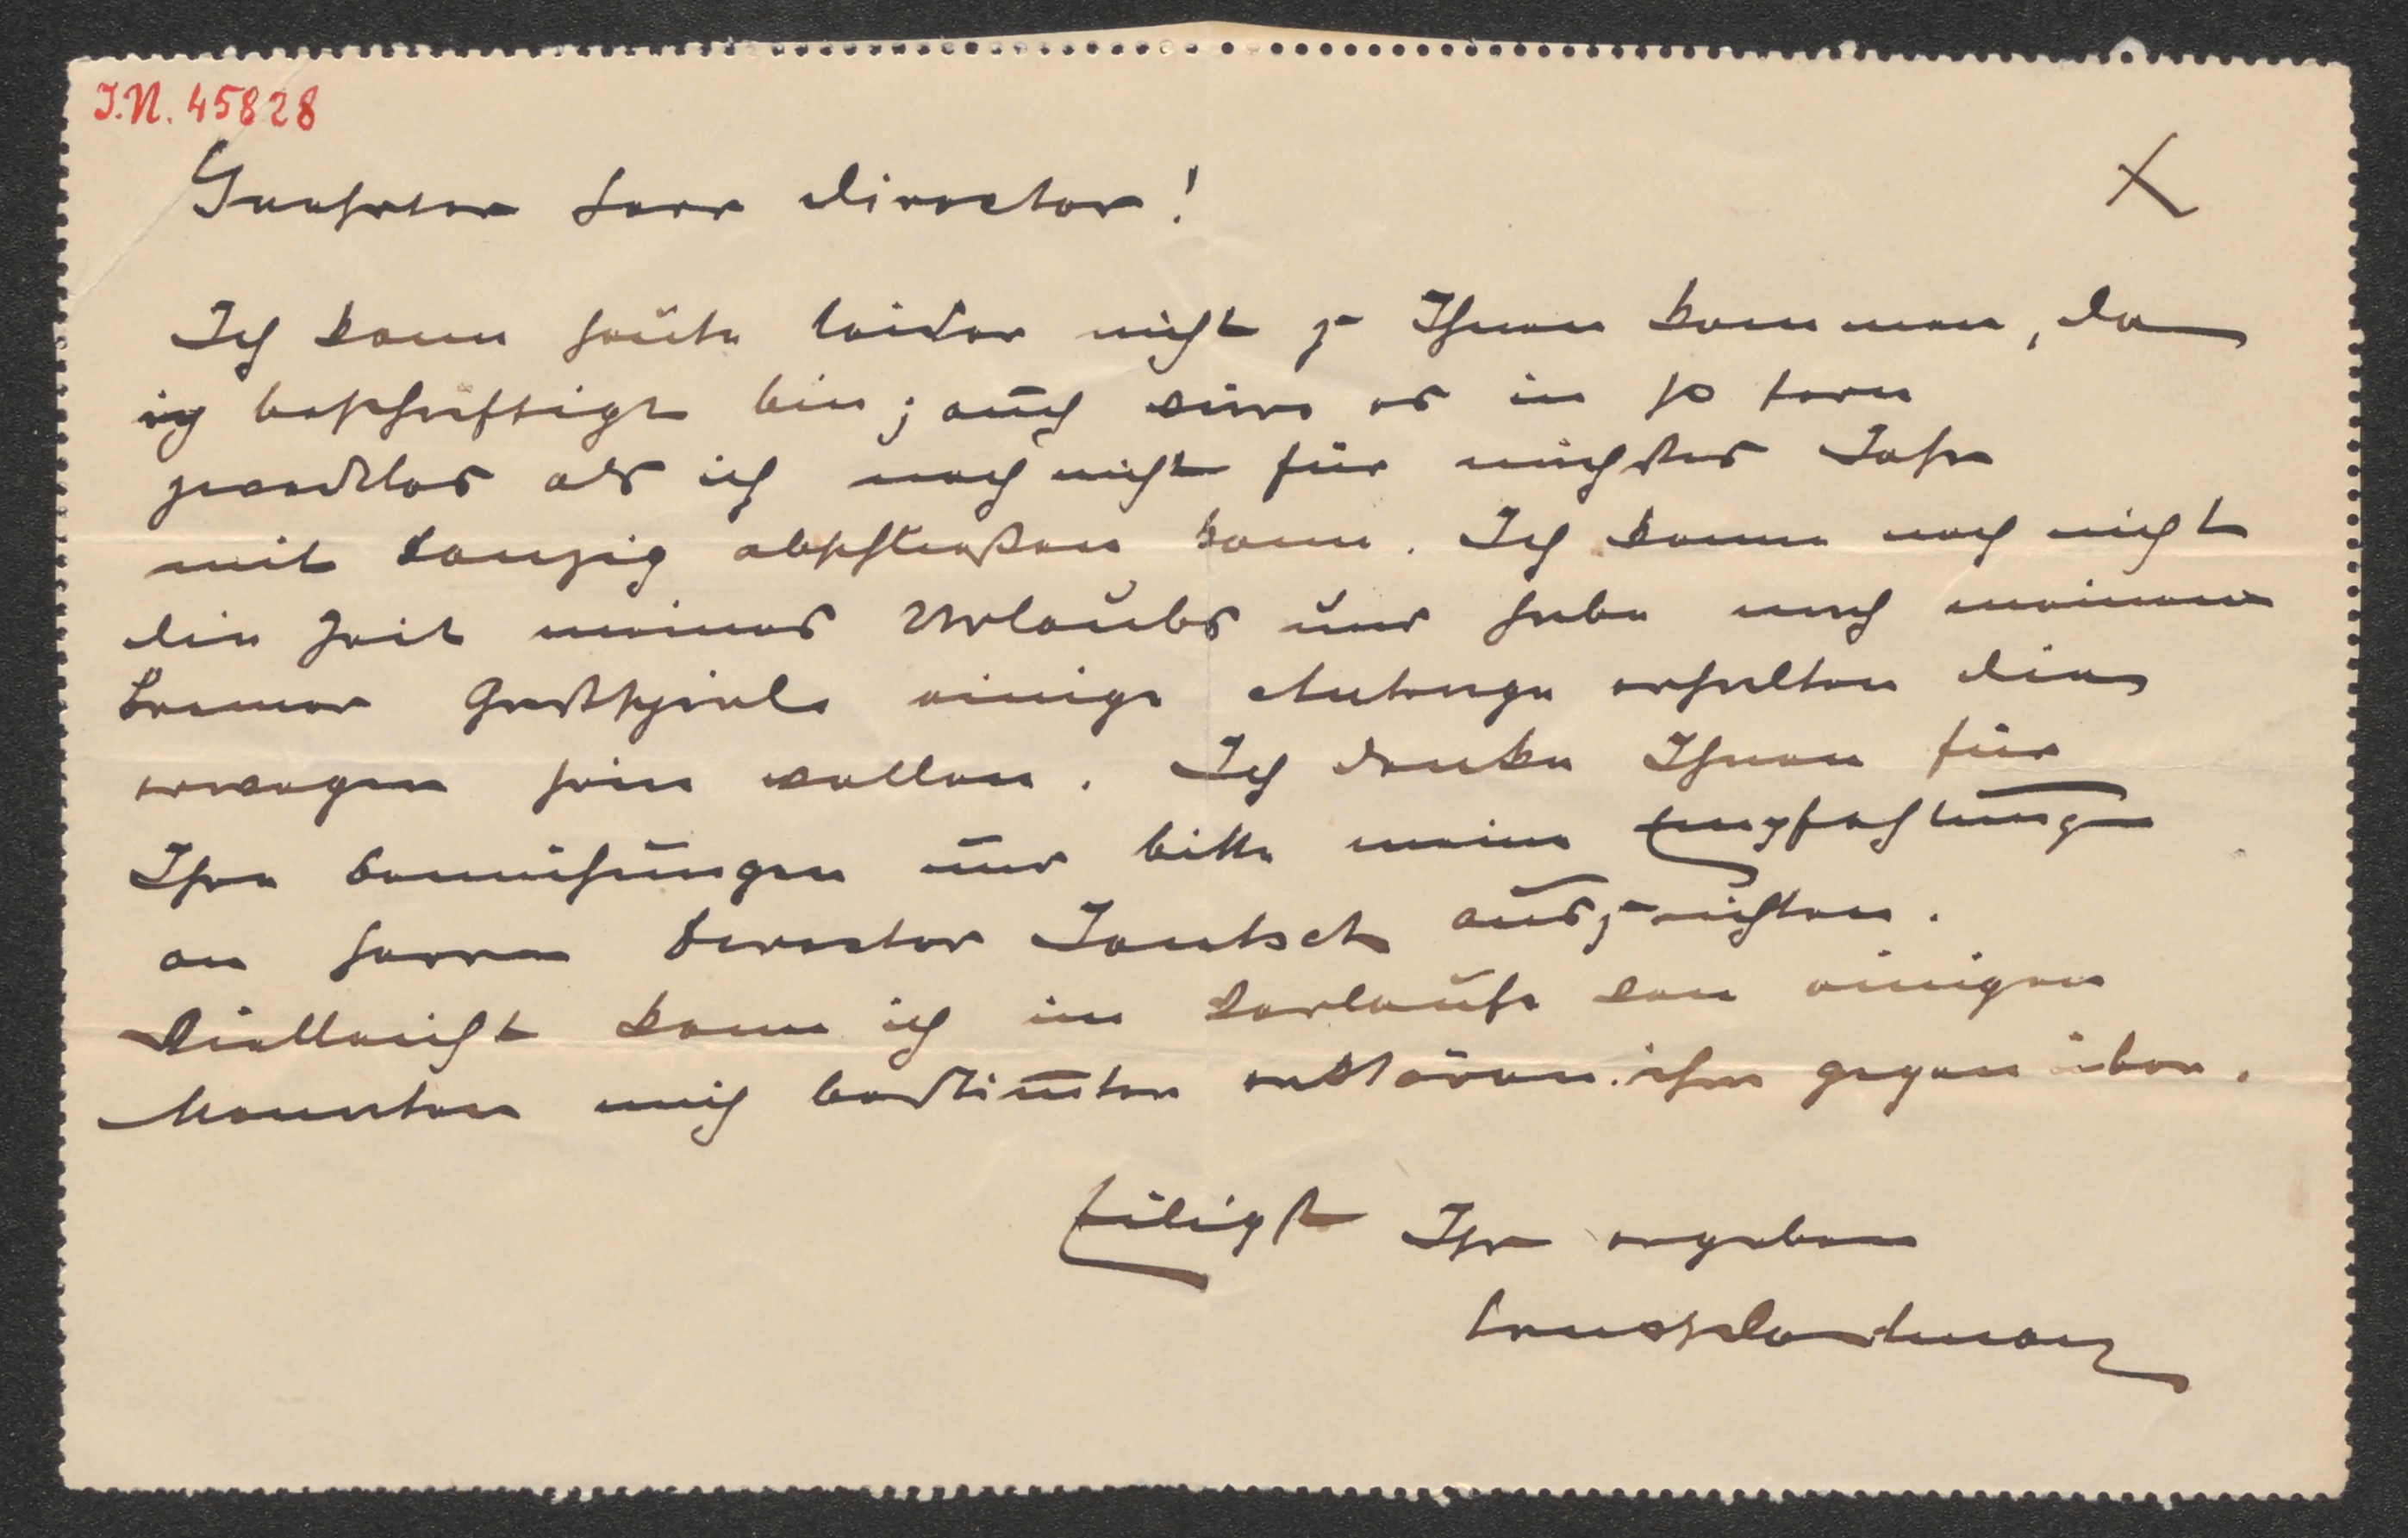 I.N. 45828
Geehrter Herr Director!
Ich kann heute leider nicht zu Ihnen kommen, da
ich beschäftigt bin; auch wäre es in so fern
zwecklos als ich noch nicht für nächstes Jahr
mit Danzig abschließen kann. Ich kenne noch nicht
die Zeit meines Urlaubs und habe nach meinem
Bremer Gastspiele einige Anträge erhalten die
erwogen sein wollen. Ich danke Ihnen für
Ihre Bemühungen und bitte meine Empfehlungen
an Herrn Director Jantsch auszurichten.
Vielleicht kann ich im Verlaufe von einigen
Monaten mich bestimter erklären ihm gegenüber.
Eiligst Ihr ergeben